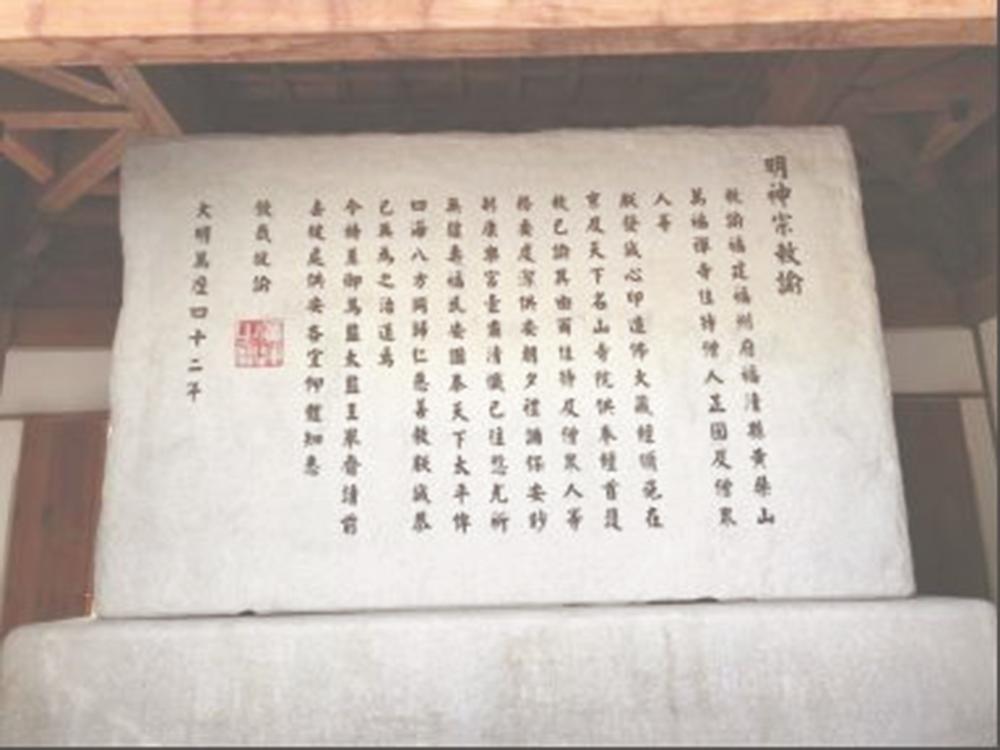 明神宗敕諭
敕諭福建福州府福清縣黃檗山
萬福禪寺住持僧人正圓及僧眾
人等
朕發誠心印造佛大藏經頒施在
京及天下名山寺院供奉經首護
敕已諭其由爾住持及僧眾人等
務要虔潔供安朝夕禮誦保安眇
躬康泰宮壼肅清懺已往愆尤祈
無疆壽福民安國泰天下太平俾
四海八方同歸仁慈善教朕成恭
己無為之治道焉
今特差御馬監太監王舉齎請前
去彼處供安各宜仰體知悉
欽哉故諭
大明萬歷四十二年